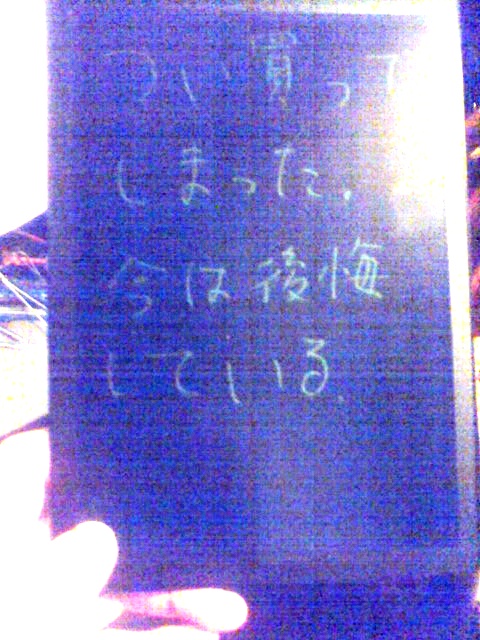 つい買って
しまった.
今は後悔
している.